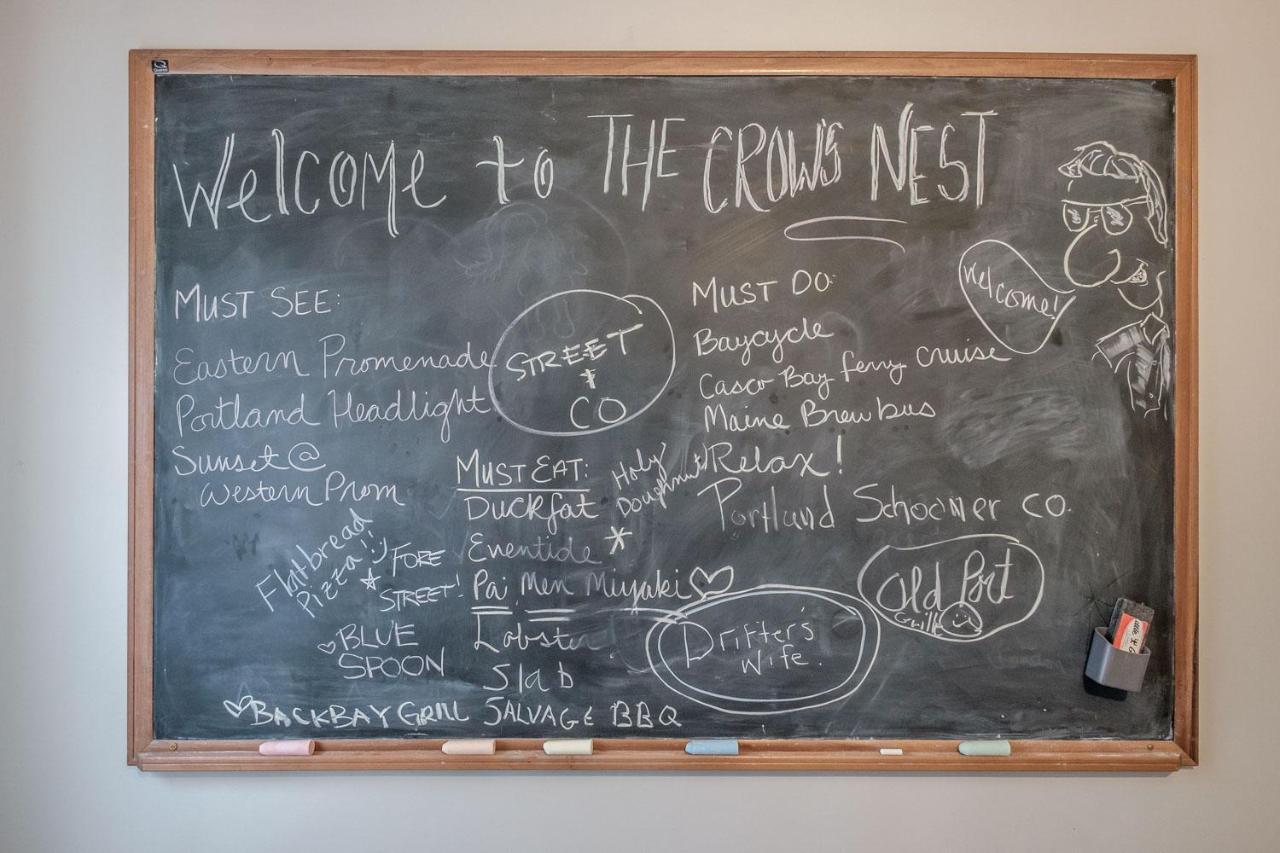 Welcome to THE CROW'S NEST
Welcome!
MUST SEE:
Eastern Promenade
Portland Headlight
Sunset @
Western Prom
STREET
&
CO
MUST DO:
Baycycle
Casco Bay ferry cruise
Maine Brew bus
Relax!
Portland Schooner CO.
MUST EAT:
Duckfat
Holy
Doughnut!
Eventide
Pai Men Miyaki
Lobster
Slab
SALVAGE BBQ
Flatbread
Pizza
FORE
STREET!
BLUE
SPOON
BACKBAY GRILL
Drifter's
Wife.
Old Port
Grill